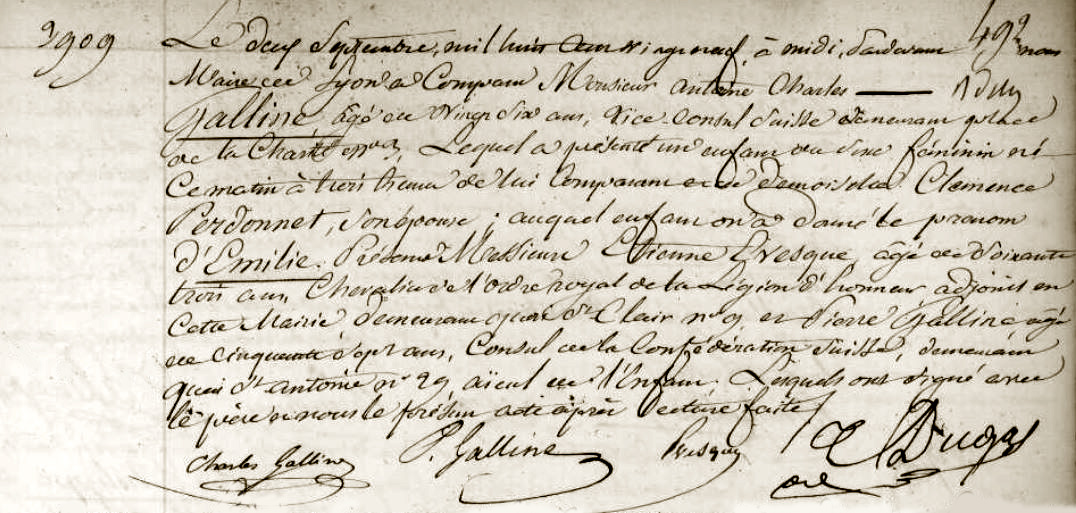 3909 Le deux Septembre, mil huit cent vingt neuf, à midi, pardevant nous
Maire de Lyon a Comparu Monsieur Antoine Charles —
Galline âgé de vingt six ans, Vice Consul Suisse demeurant place
de la Charité, Lequel a présenté un enfant du sexe féminin né
Ce matin à trois heures de lui Comparant et de demoiselle Clémence
Perdonnet, son épouse ; auquel enfant on a donné le prenom
d'Emilie. Présens Messieurs Etienne Evesque, âgé de soixante
trois ans, Chevalier de l'ordre royal de la Légion d'honneur adjoint en
Cette Mairie, demeurant quai St Clair no 9, et Pierre Galline, âgé
de cinquante sept ans, Consul de la Confédération Suisse, demeurant
quai St Antoine no 29, aïeul de l'Enfant. Lesquels ont signé avec
le père et nous le présent acte après lecture faite
Charles Galline P. Galline Evesque Dugas